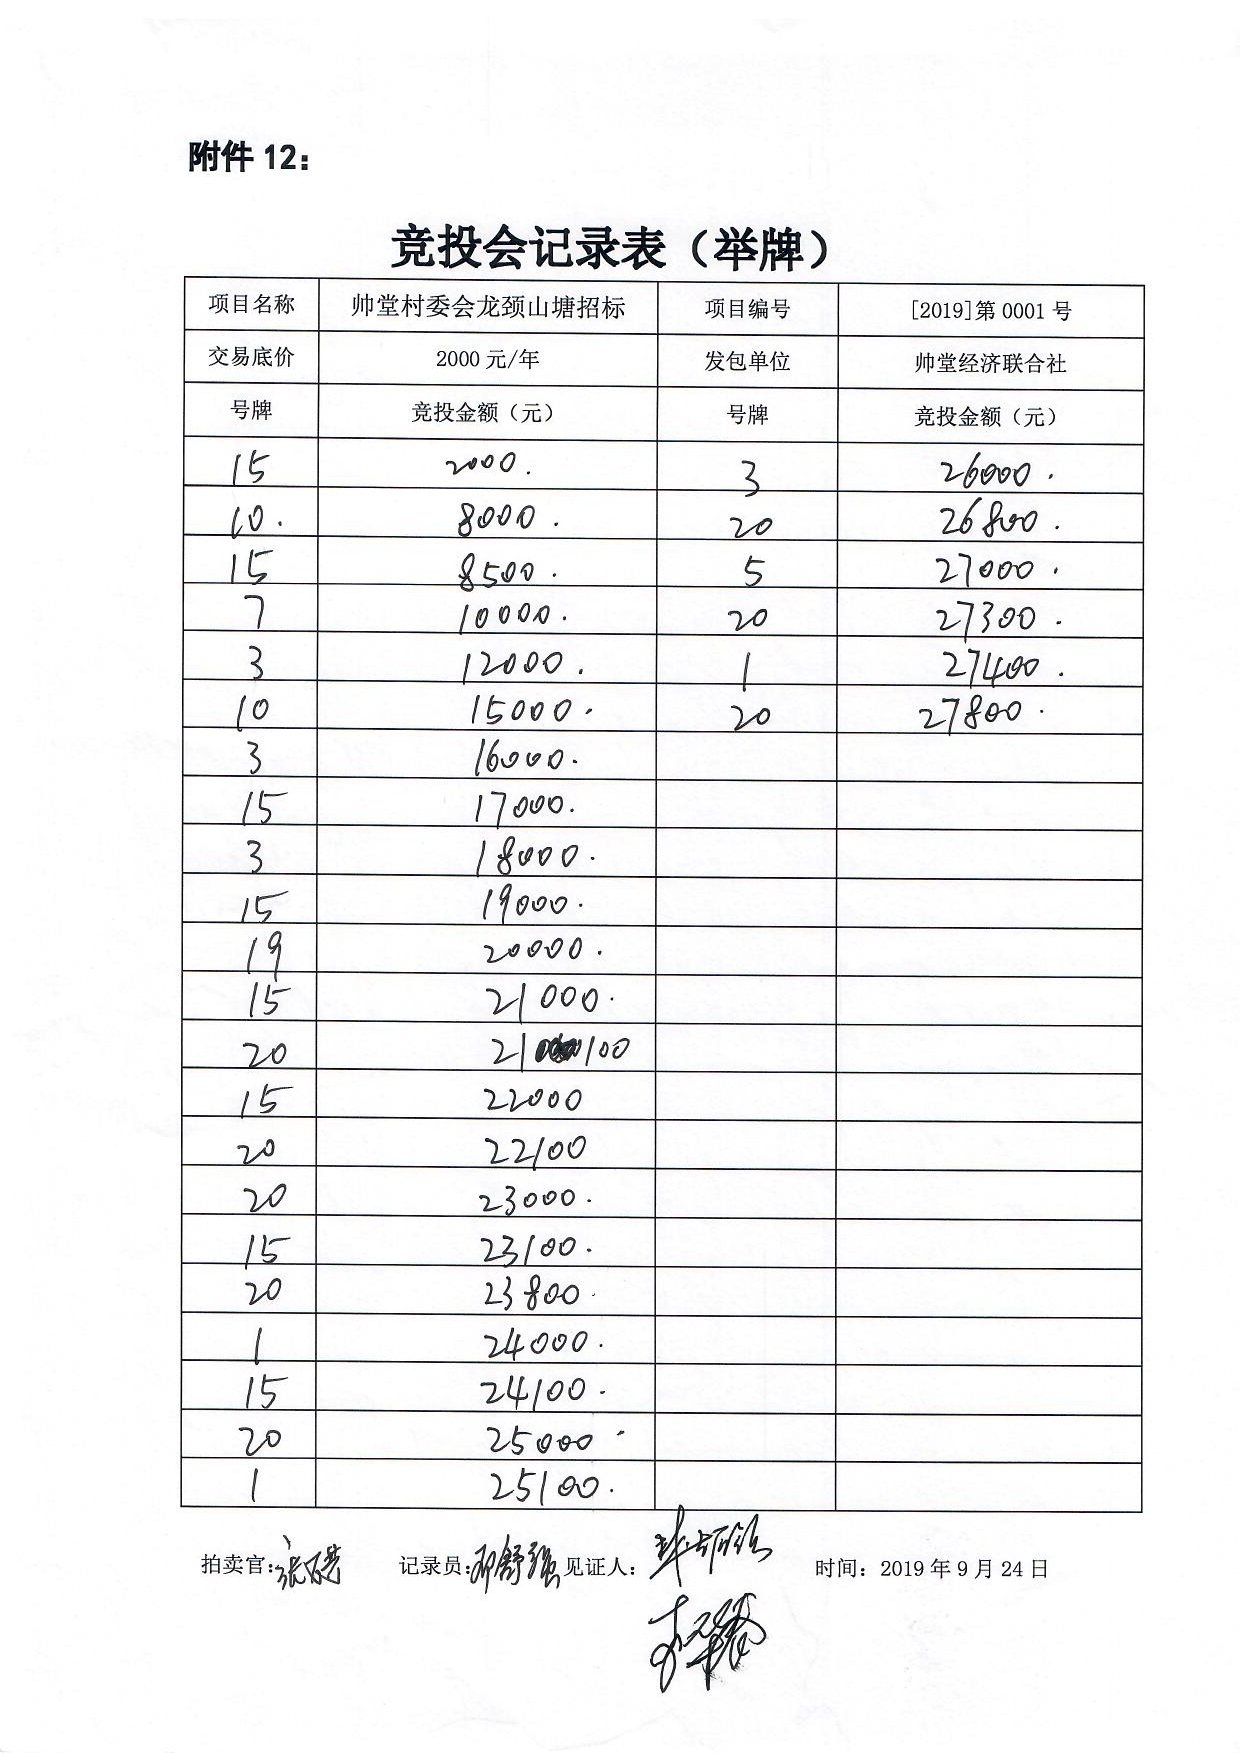 附件 12：
竞投会记录表（举牌）
项目名称 帅堂村委会龙颈山塘招标 项目编号 [2019]第 0001 号
交易底价 2000 元/年 发包单位 帅堂经济联合社
号牌 竞投金额（元） 号牌 竞投金额（元）
15 2000. 3 26000.
10. 8000. 20 26800.
15 8500. 5 27000.
7 10000. 20 27300.
3 12000. 1 27400.
10 15000. 20 27800.
3 16000.
15 17000.
3 18000.
15 19000.
19 20000.
15 21000.
20 21100
15 22000
20 22100
20 23000.
15 23100.
20 23800.
1 24000.
15 24100.
20 25000.
1 25100.
拍卖官： 记录员：邓舒强 见证人： 时间：2019 年 9 月 24 日